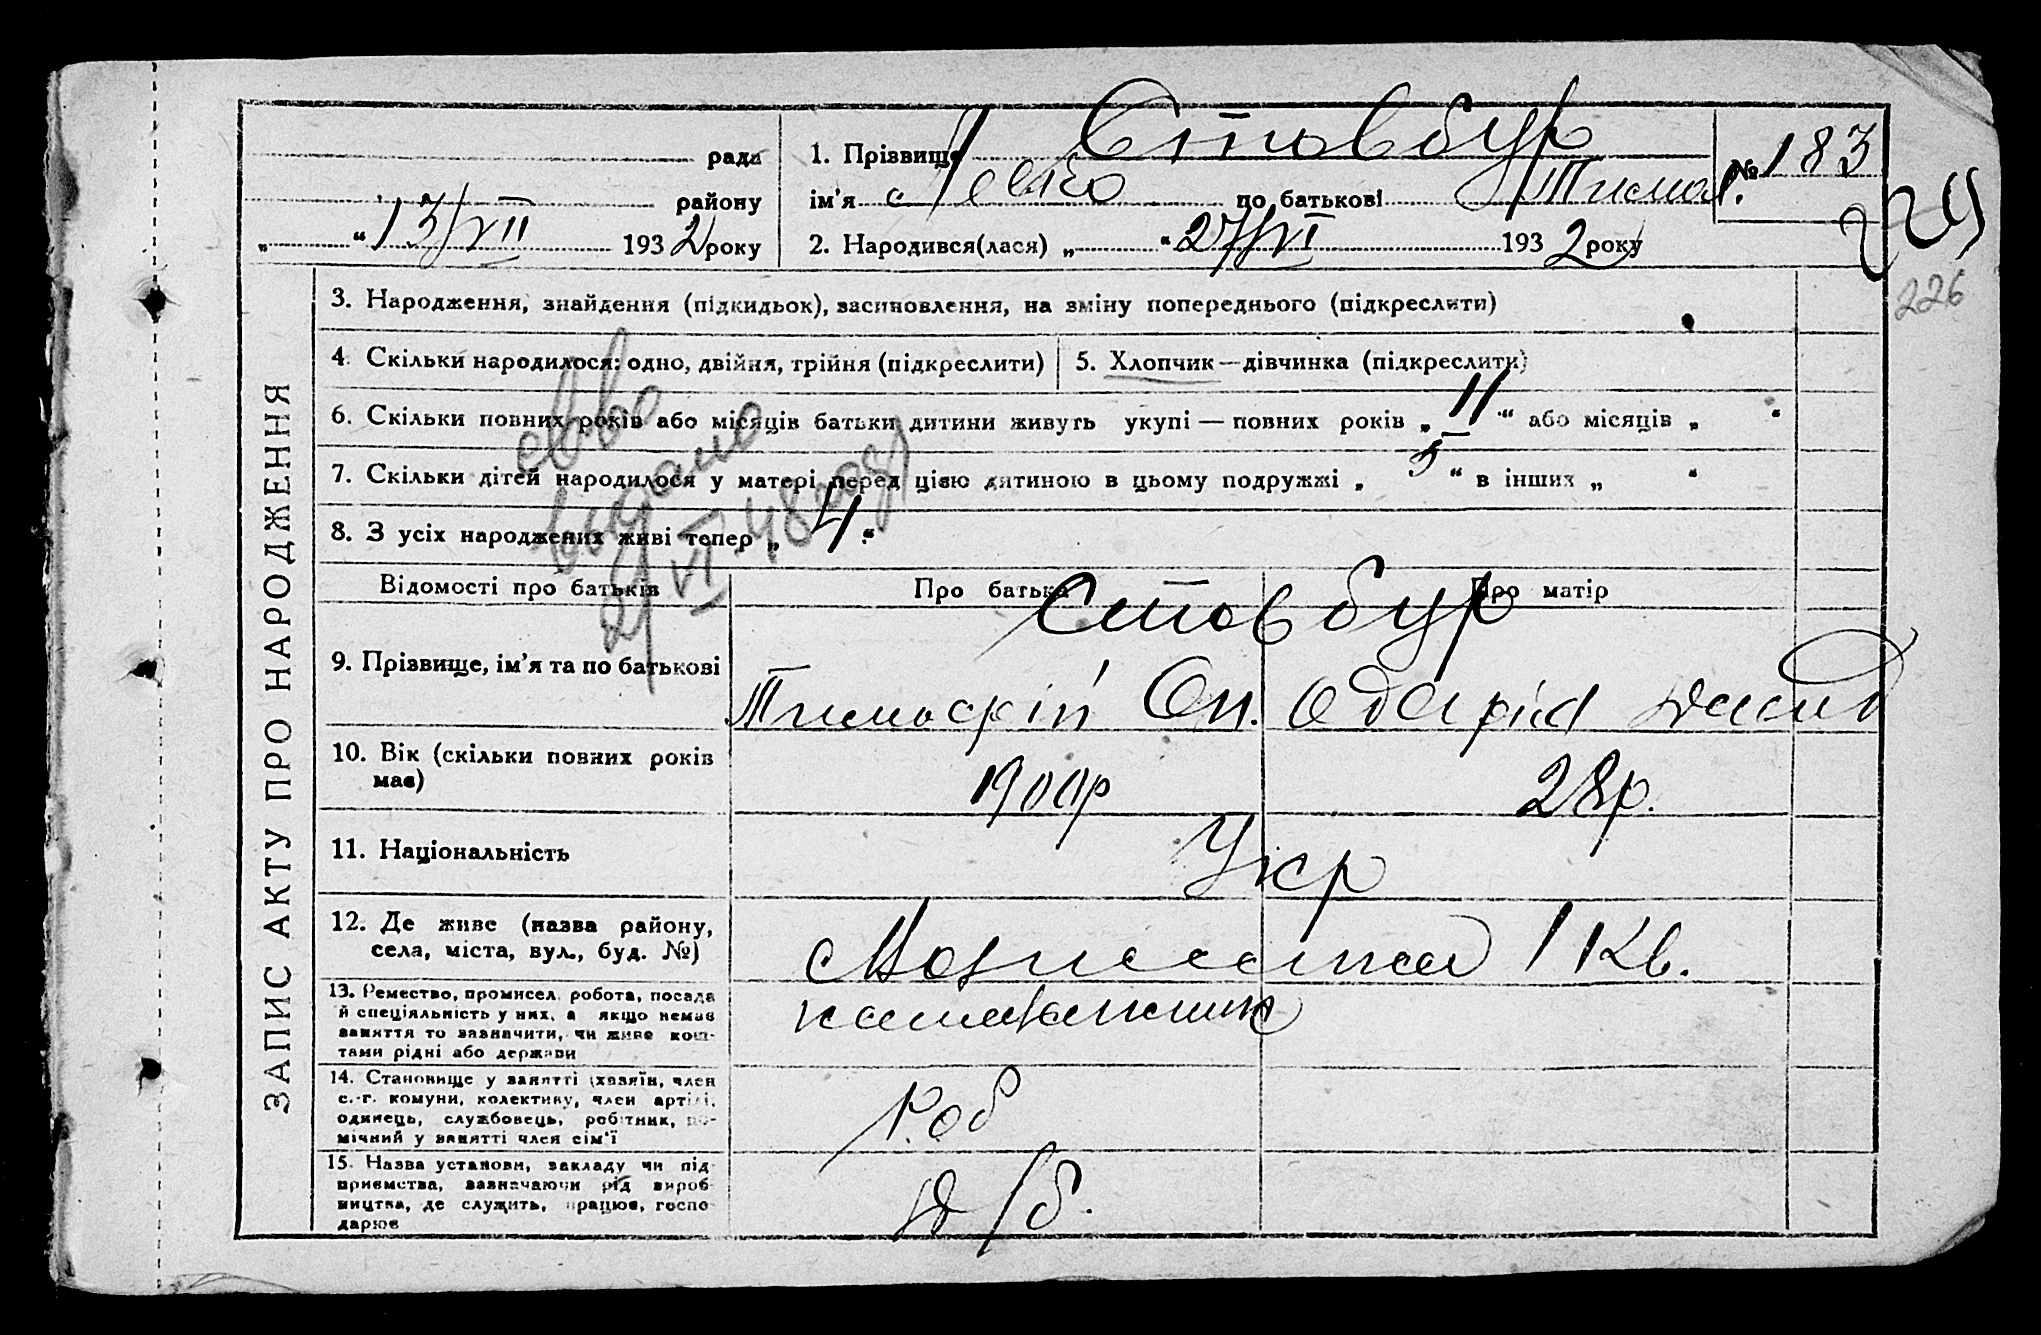 ЗАПИС АКТУ ПРО НАРОДЖЕННЯ
ради
району
„ “ 13/VII 1932 року
1. Прізвище Стовбур
ім'я по батькові Тимох.
2. Народився(лася) „ “ 27/VI 1932 року
№ 183
226
3. Народження, знайдення (підкидьок), засиновлення, на зміну попереднього (підкреслити)
4. Скільки народилося: одно, двійня, трійня (підкреслити)
5. Хлопчик—дівчинка (підкреслити)
6. Скільки повних років або місяців батьки дитини живуть укупі — повних років „ 11 “ або місяців „ “
7. Скільки дітей народилося у матері перед цією дитиною в цьому подружжі „ 5 “ в інших „ “
8. З усіх народжених живі тепер „ 4 “
выдано
VI 48
Відомості про батьків
Про батька
Про матір
Стовбур
9. Прізвище, ім'я та по батькові
Тимофій Он. Одарія Давид
10. Вік (скільки повних років
має)
1900р
28р.
11. Національність
Укр
12. Де живе (назва району,
села, міста, вул., буд. №)
1 Кв.
13. Ремество, промисел, робота, посада
й спеціяльність у них, а якщо немає
заняття то зазначити, чи живе кош-
тами рідні або держави
14. Становище у занятті (хазяїн, член
с.-г. комуни, колективу, член артілі,
одинець, службовець, робітник, по-
мічний у занятті член сім'ї
Роб
15. Назва установи, закладу чи під-
приємства, зазначаючи рід вироб-
ництва, де служить, працює, госпо-
дарює